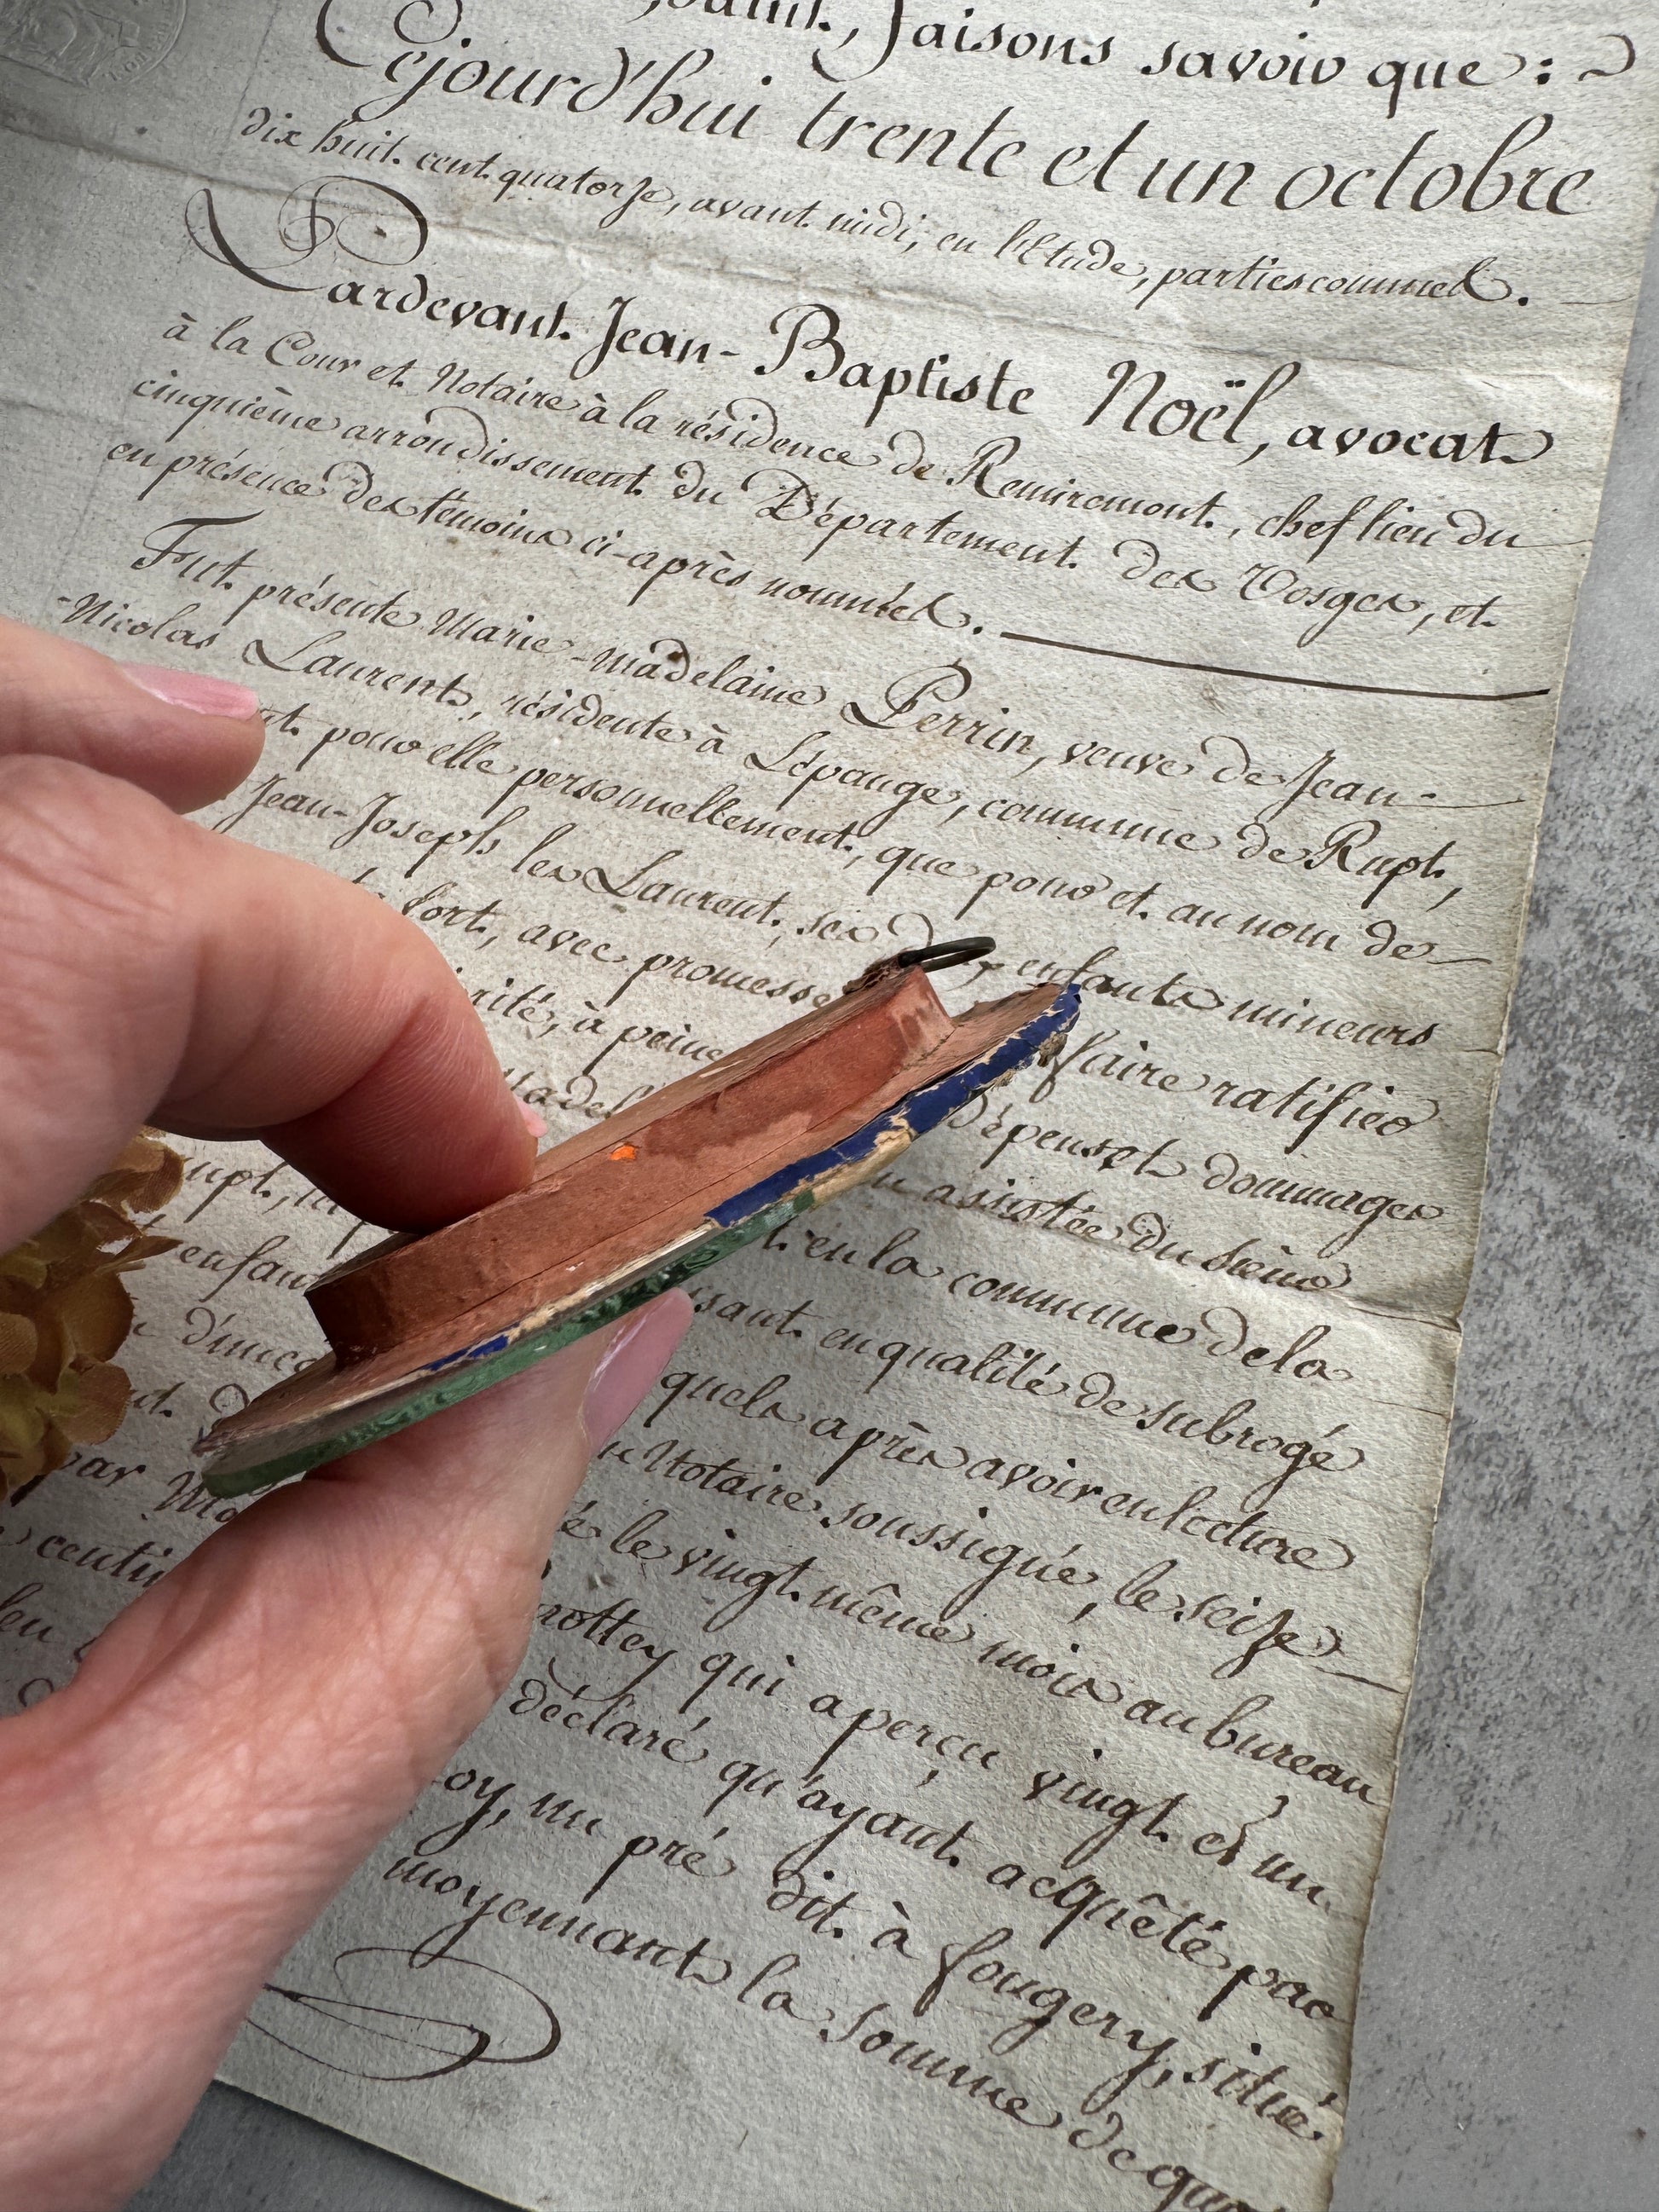 faisons savoir que :
Cejourd'hui trente et un octobre
dix huit cent quatorze, avant midi, en l'Etude, parties comme
Pardevant Jean-Baptiste Noël, avocat
à la Cour et Notaire à la résidence de Remiremont, chef lieu du
cinquième arrondissement du Département des Vosges, et
en présence des témoins ci-après nommés.
Fut présente Marie-Madelaine Perrin, veuve de Jean-
-Nicolas Laurent, résidente à Lépange, commune de Rupt,
pour elle personnellement, que pour et au nom de
Jean-Joseph les Laurent, ses enfants mineurs
fort, avec promesse faire ratifier
rité, à peine dépens et dommages
adel assistée du sieur
upt, en la commune de la
enfan sant en qualité de subrogé
d' quels après avoir eu lecture
par Notaire soussigné, le seize
centi le vingt même mois au bureau
rottey qui a perçu vingt et un
déclaré qu'ayant acquêté par
oy, un pré dit à fougery, situé
moyennant la somme de